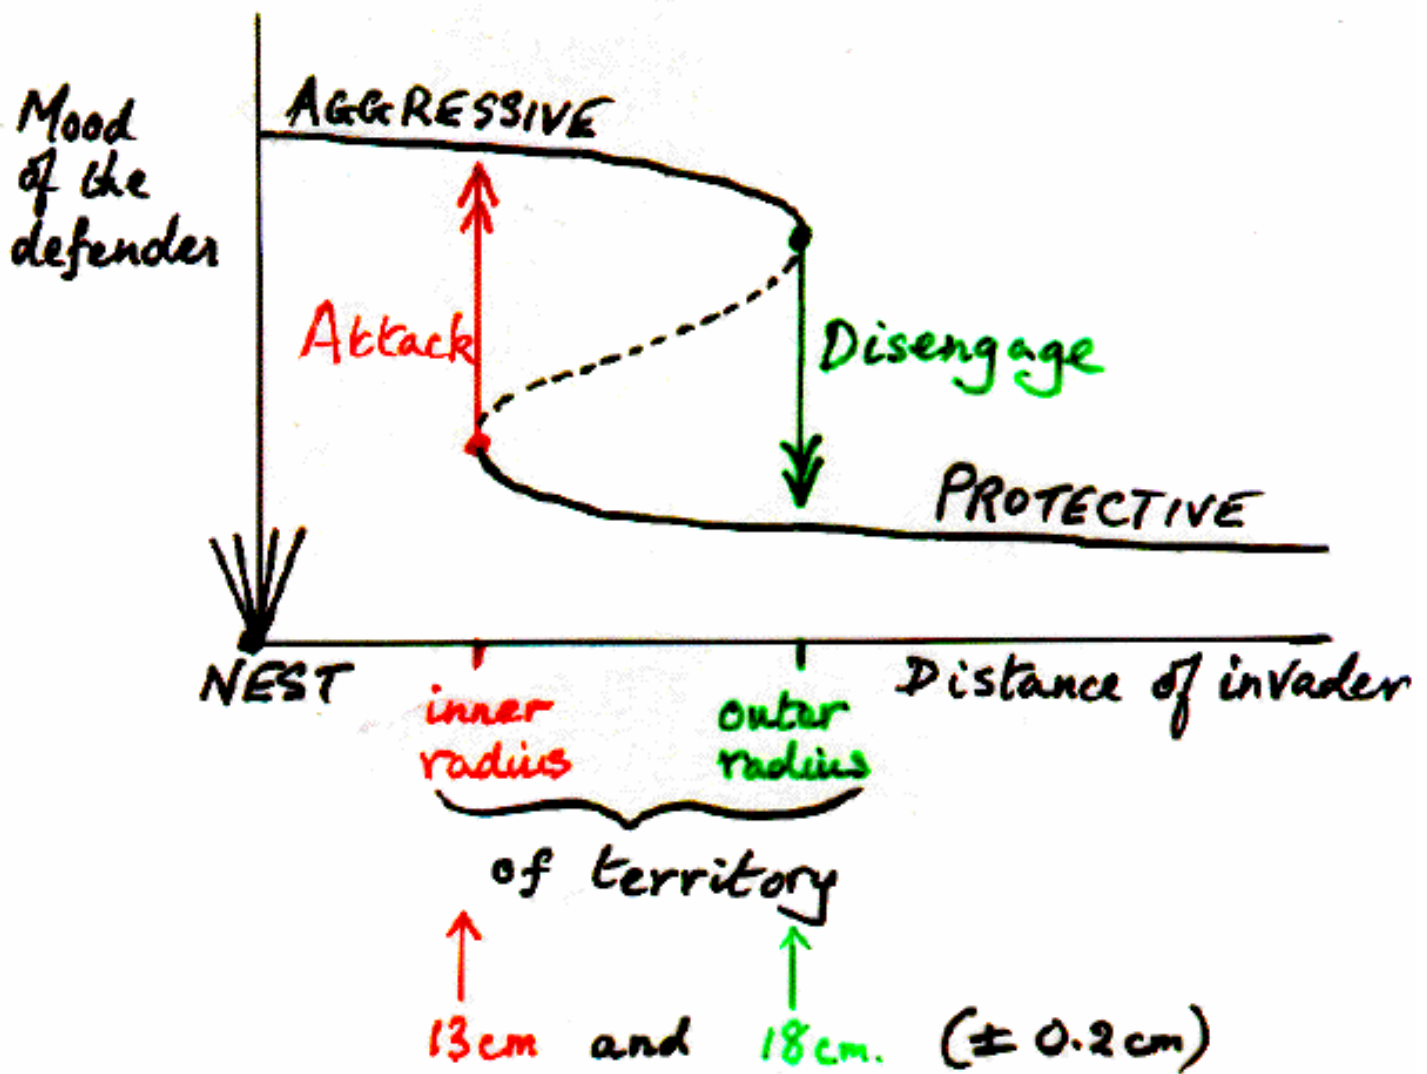 AGGRESSIVE
Mood
of the
defender
Attack
Disengage
PROTECTIVE
NEST
inner
radius
outer
radius
Distance of invader
of territory
13cm and 18cm. (± 0.2cm)